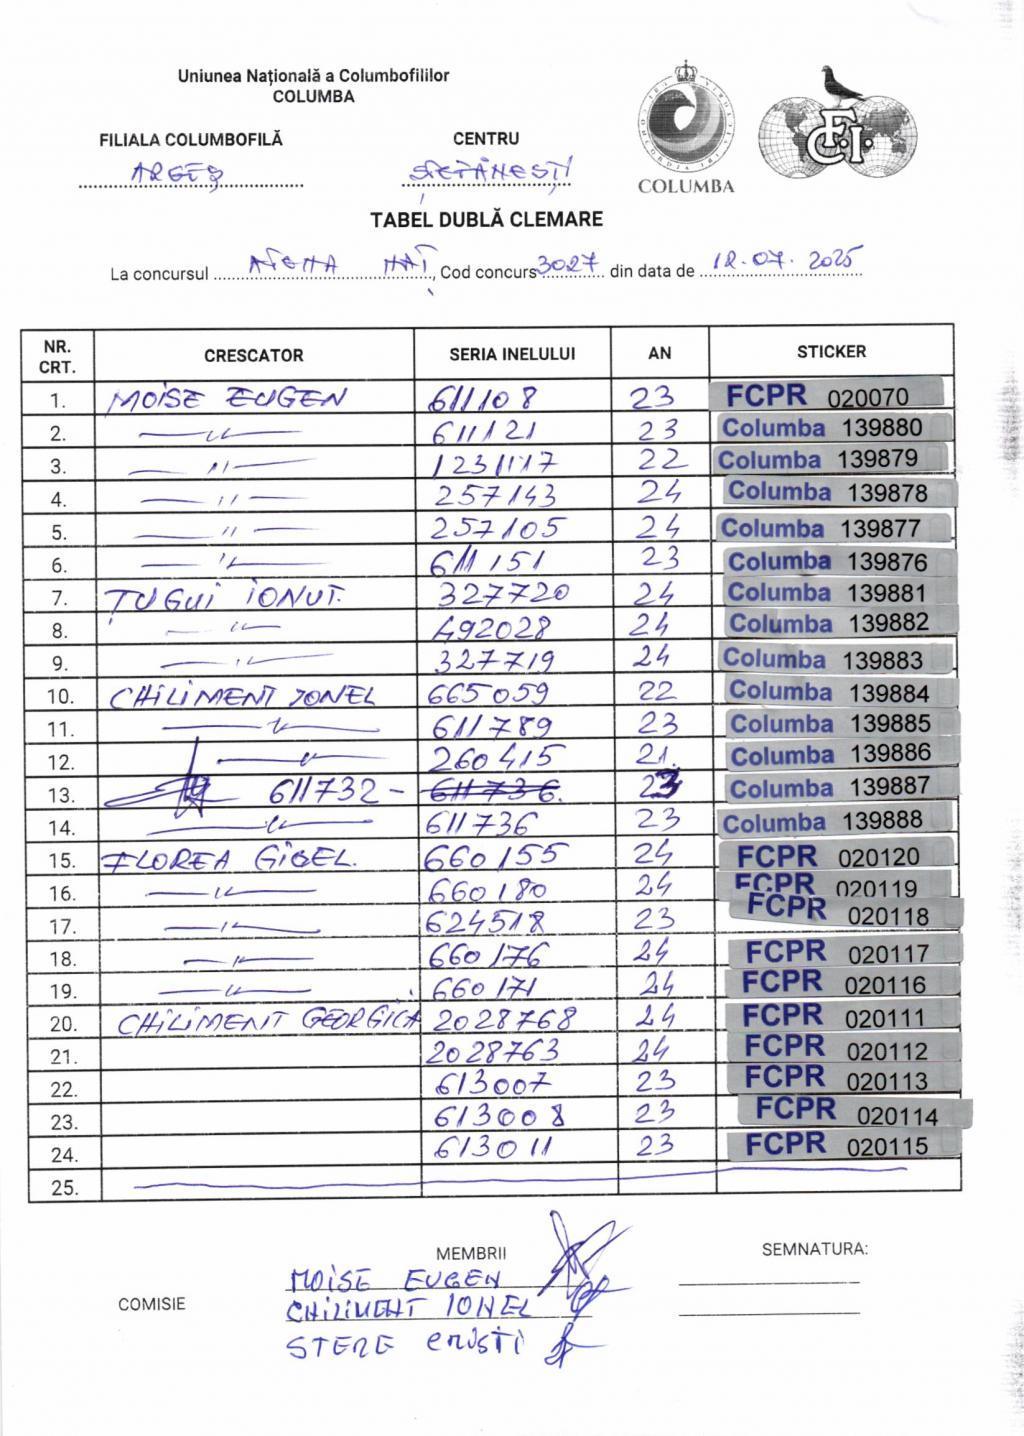 Uniunea Națională a Columbofililor
COLUMBA
FILIALA COLUMBOFILĂ CENTRU
ARGEȘ ȘTEFĂNEȘTI
COLUMBA
F.C.I.
TABEL DUBLĂ CLEMARE
La concursul HAȚ, Cod concurs 3027 din data de 12.07.2025
NR. CRT. CRESCATOR SERIA INELULUI AN STICKER
1. MOISE EUGEN 611108 23 FCPR 020070
2. —〃— 611121 23 Columba 139880
3. —〃— 1231117 22 Columba 139879
4. —〃— 257143 24 Columba 139878
5. —〃— 257105 24 Columba 139877
6. —〃— 611151 23 Columba 139876
7. ȚUGUI IONUT. 327720 24 Columba 139881
8. —〃— 492028 24 Columba 139882
9. —〃— 327719 24 Columba 139883
10. CHILIMENT IONEL 665059 22 Columba 139884
11. —〃— 611789 23 Columba 139885
12. —〃— 260415 21. Columba 139886
13. 611732 - 611736. 23 Columba 139887
14. —〃— 611736 23 Columba 139888
15. FLOREA GIGEL. 660155 24 FCPR 020120
16. —〃— 660180 24 FCPR 020119
17. —〃— 624518 23 FCPR 020118
18. —〃— 660176 24 FCPR 020117
19. —〃— 660171 24 FCPR 020116
20. CHILIMENT GEORGICA 2028768 24 FCPR 020111
21. 2028763 24 FCPR 020112
22. 613007 23 FCPR 020113
23. 613008 23 FCPR 020114
24. 613011 23 FCPR 020115
25.
MEMBRII SEMNATURA:
MOISE EUGEN
COMISIE CHILIMENT IONEL
STERE CRISTI